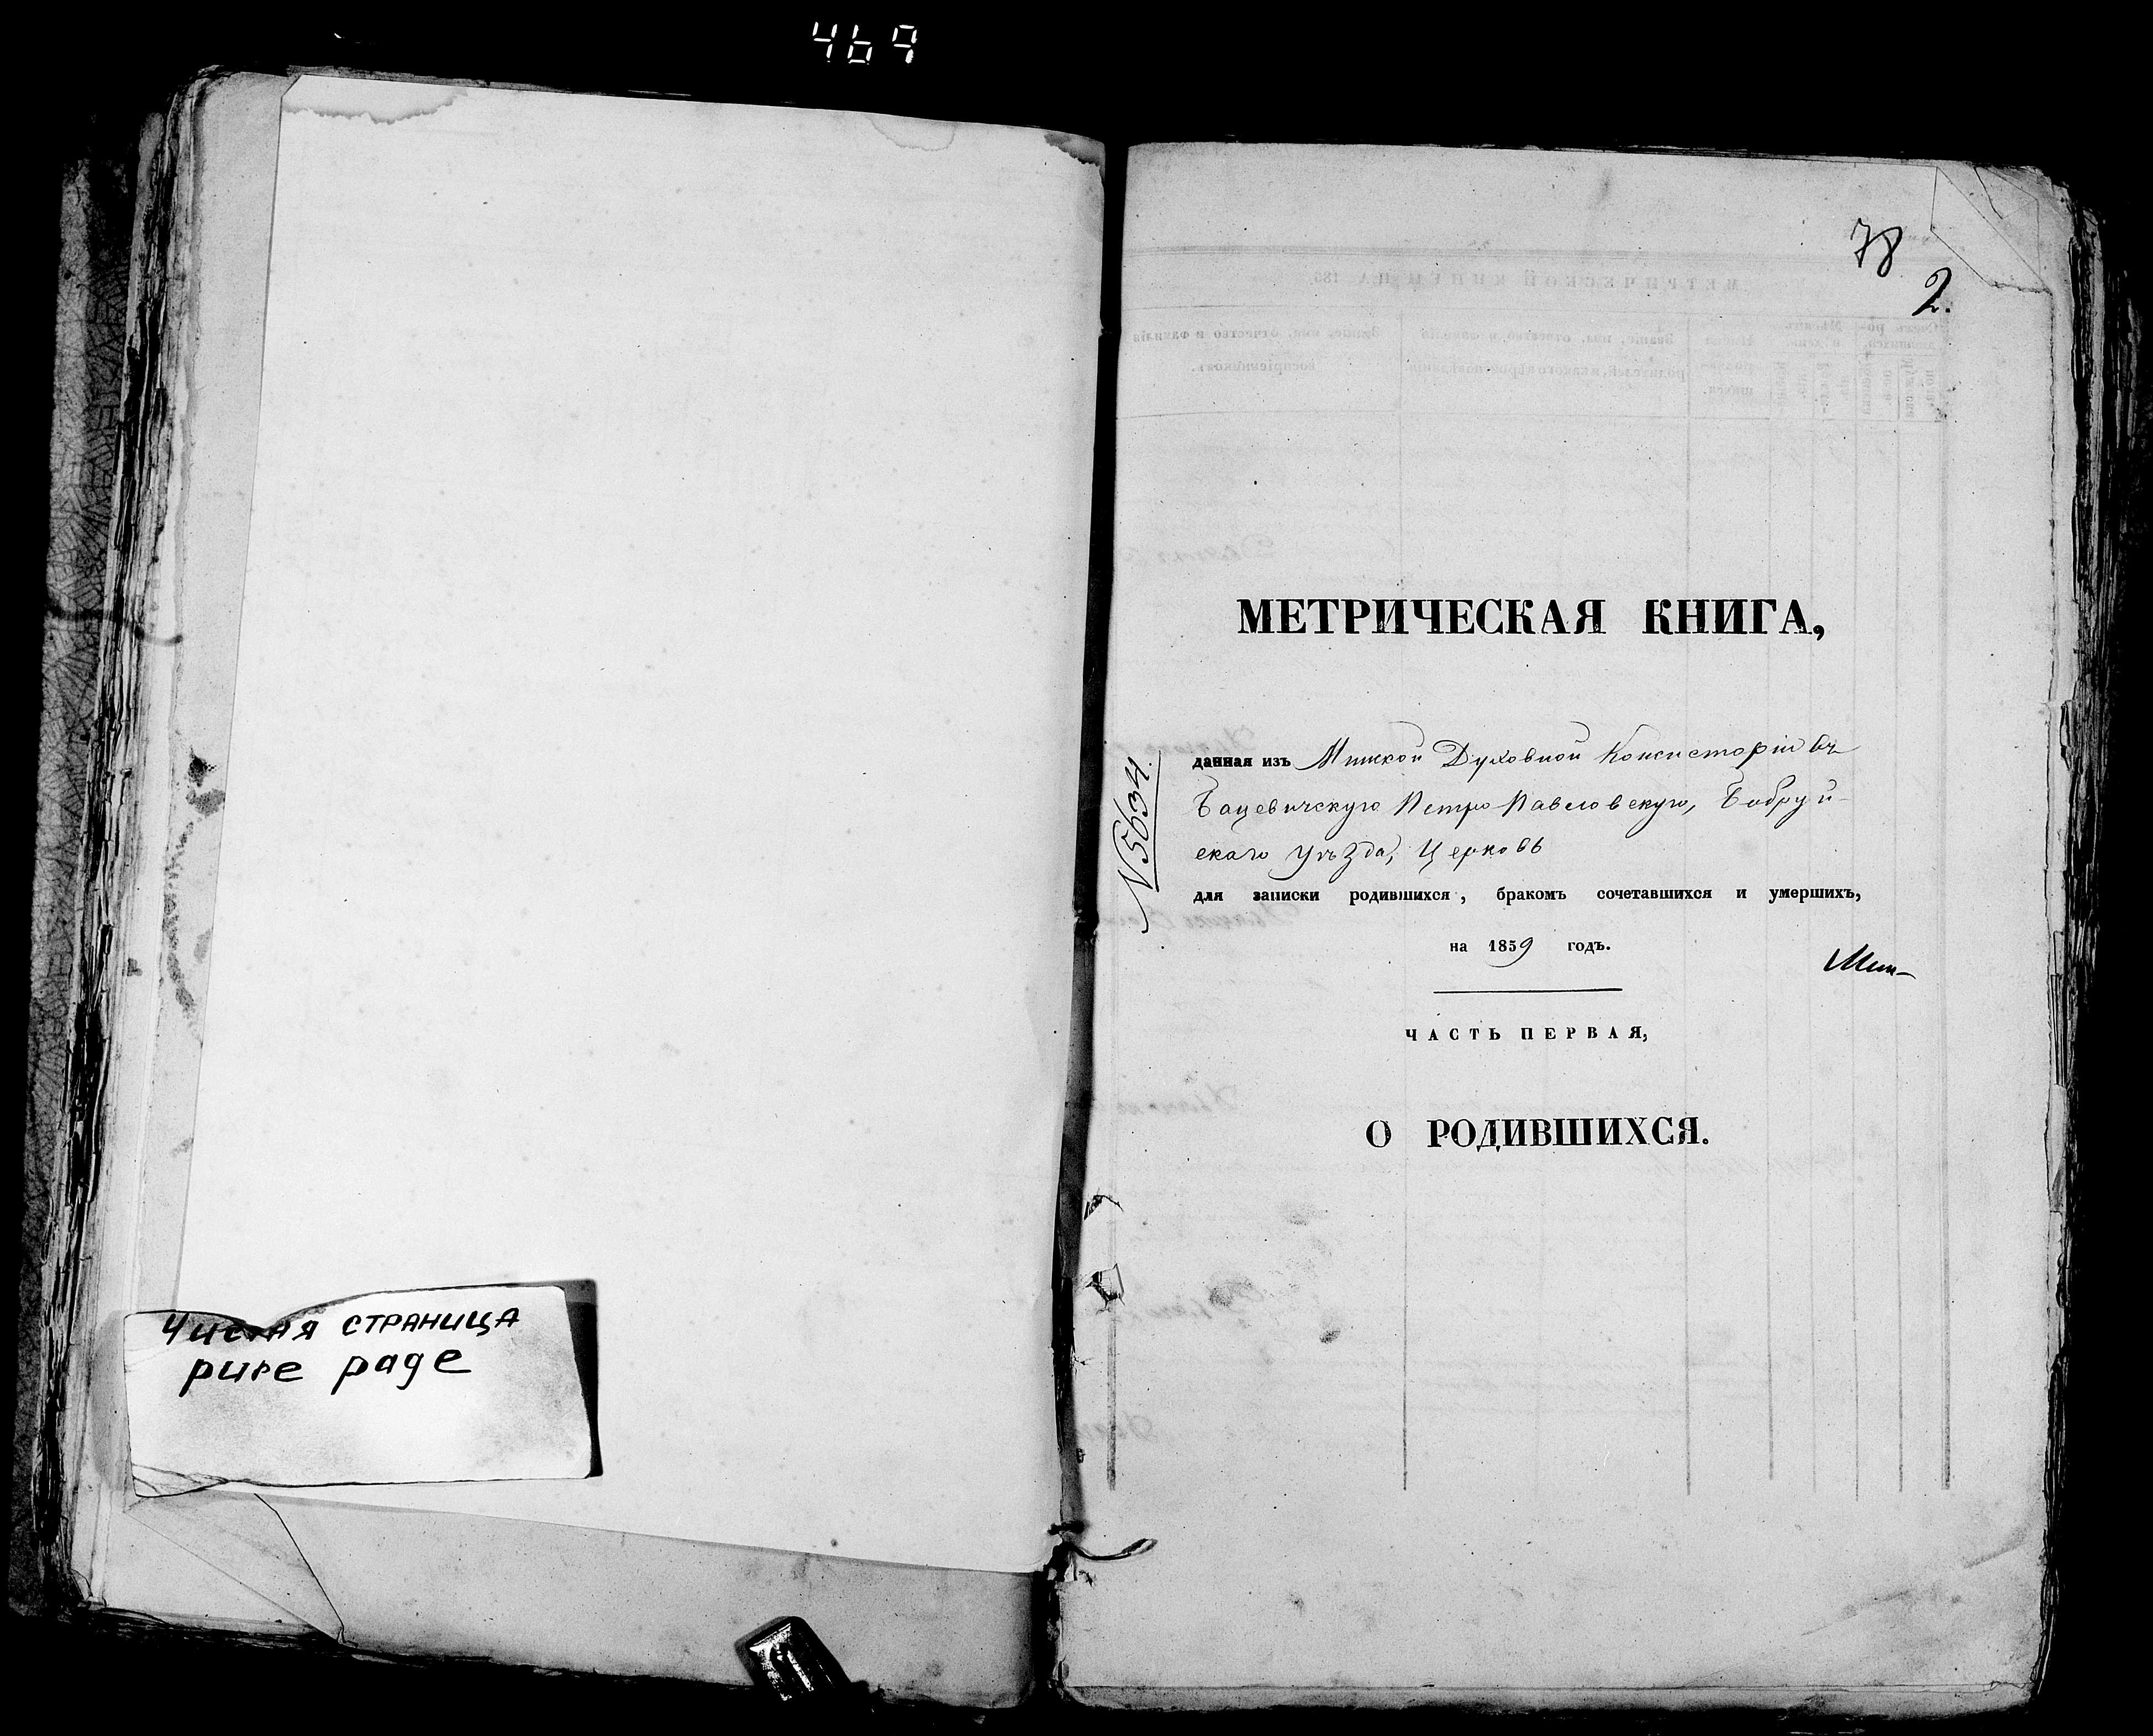 469
Чистая страница
pure page
78
2.
МЕТРИЧЕСКАЯ КНИГА,
№5634
данная изъ Минской Духовной Консисторіи въ
Бацевичскую Петро-Павловскую, Бобруй-
скаго уѣзда, Церковь
для записки родившихся, бракомъ сочетавшихся и умершихъ,
на 1859 годъ.
Мин-
ЧАСТЬ ПЕРВАЯ,
О РОДИВШИХСЯ.